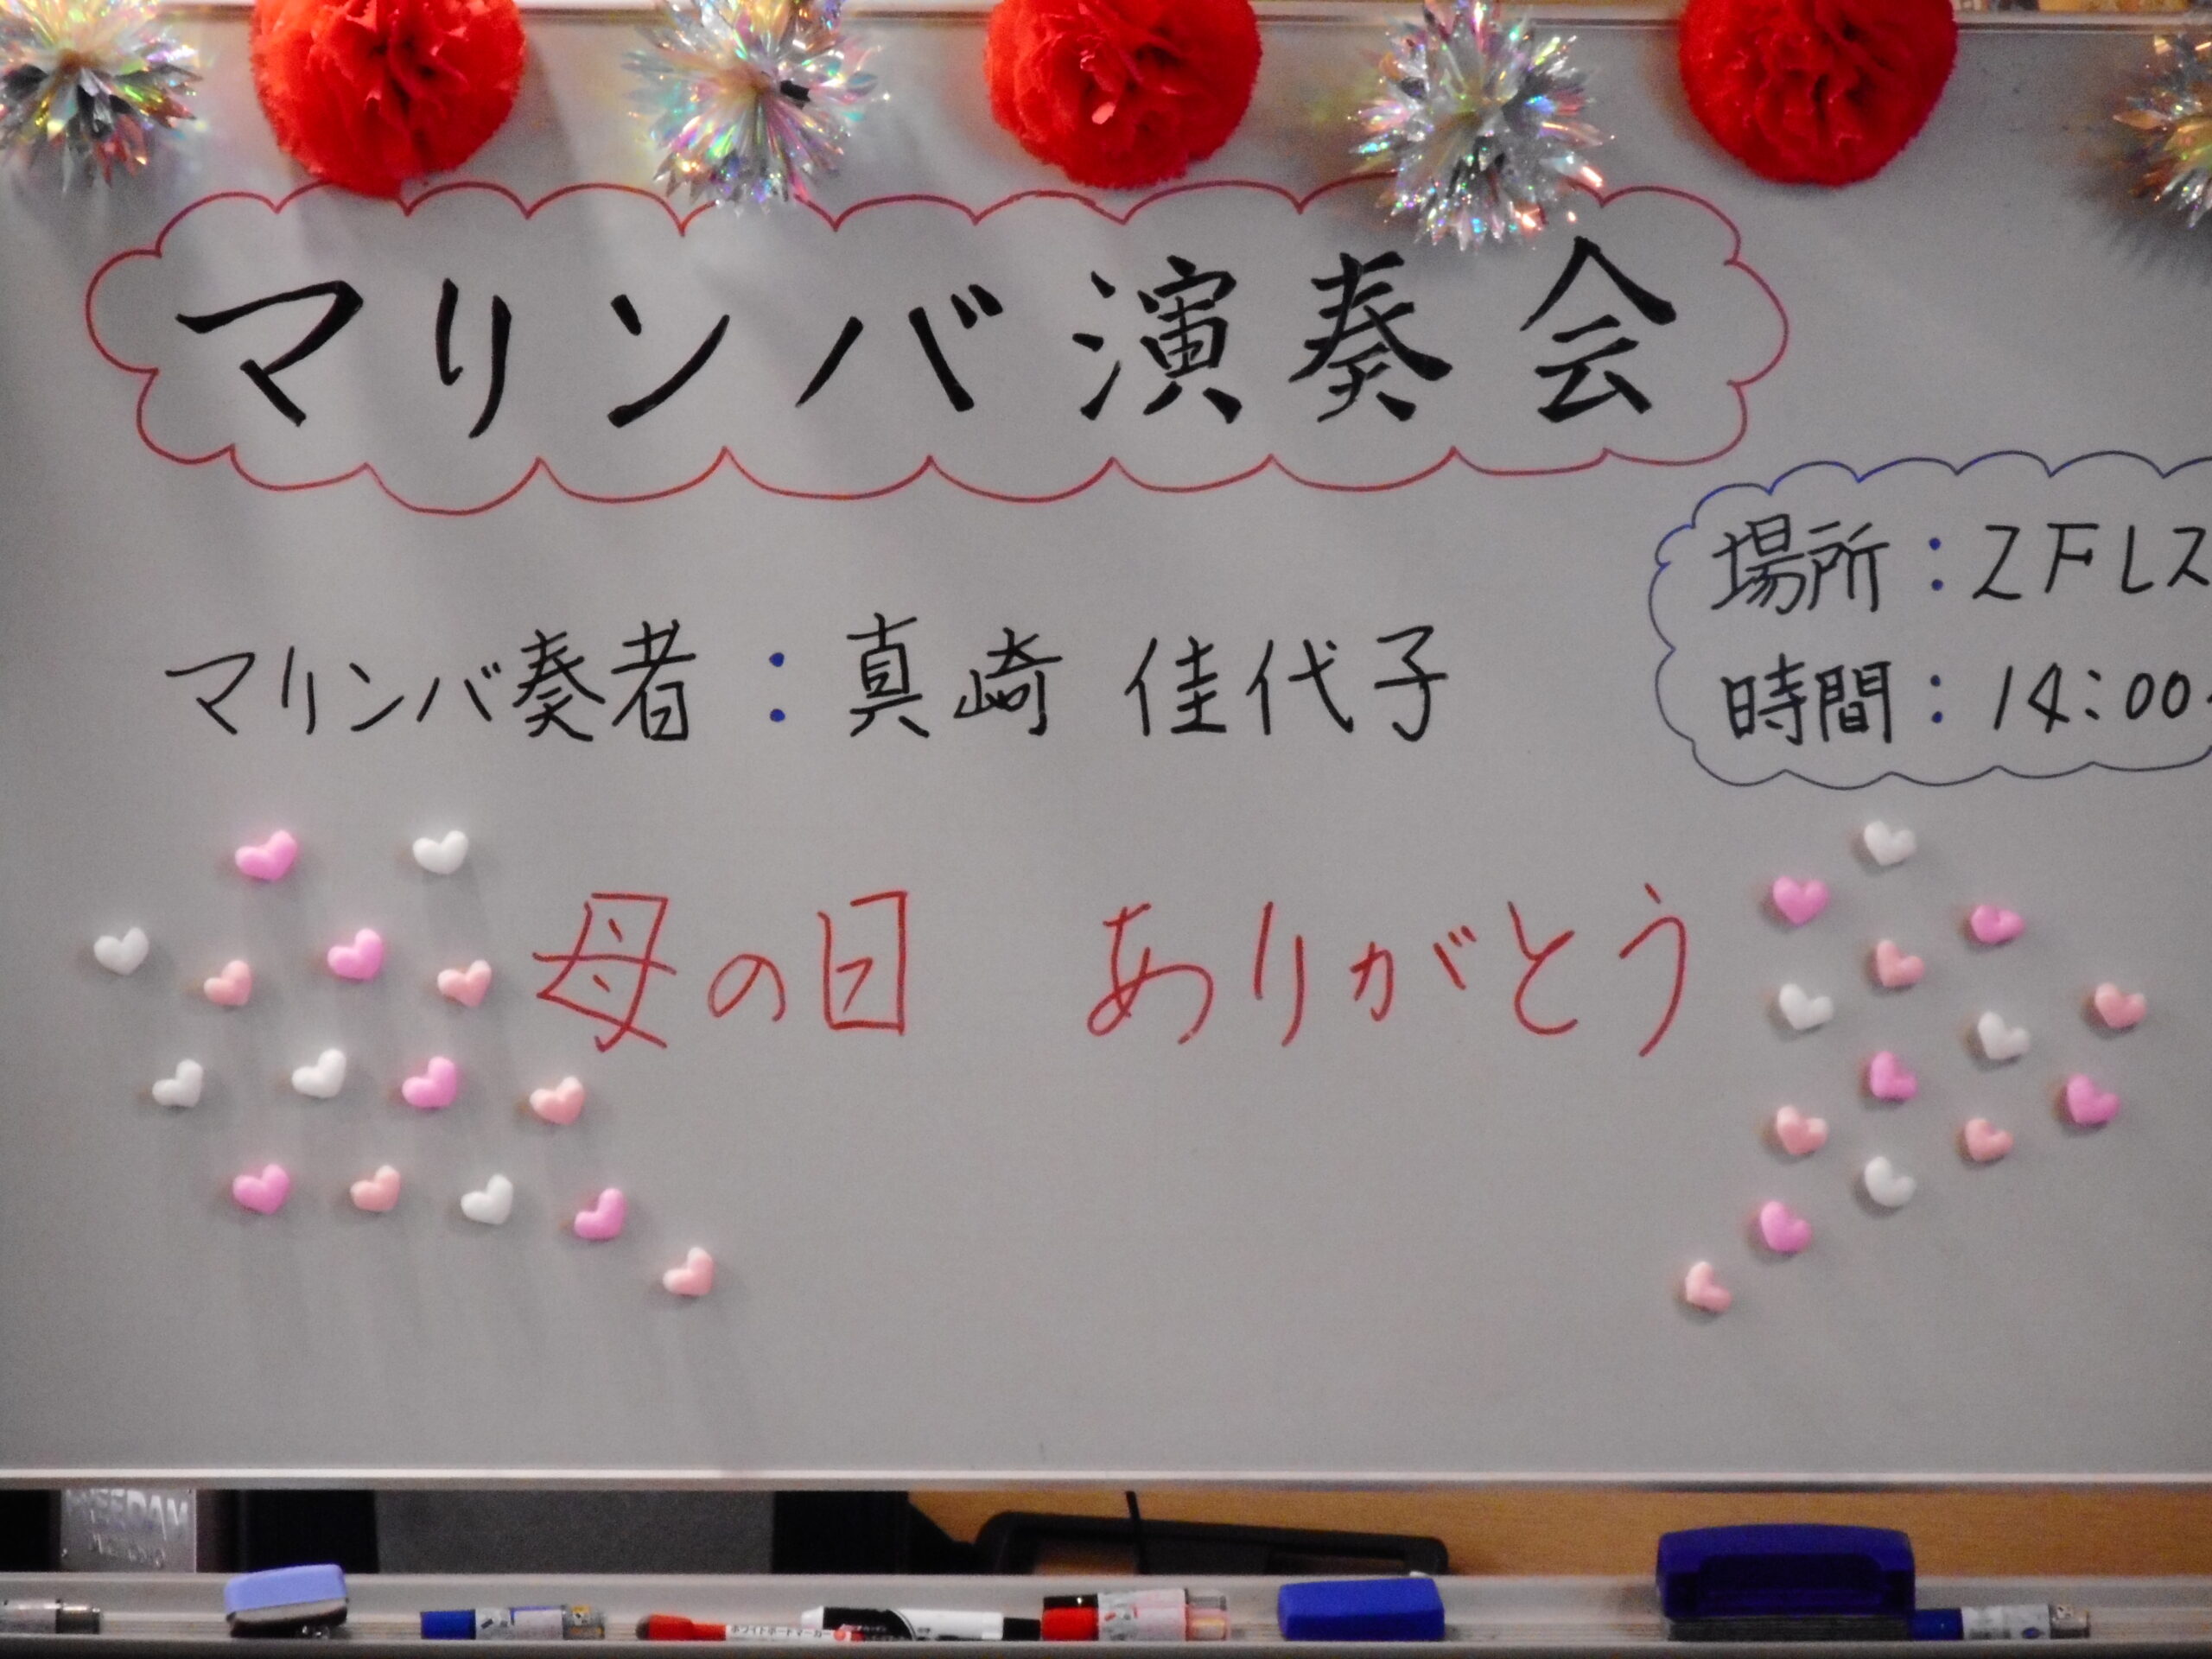 マリンバ演奏会
場所：2Fレス
マリンバ奏者：真崎 佳代子
時間：14:00
母の日 ありがとう
ホワイトボードマーカー